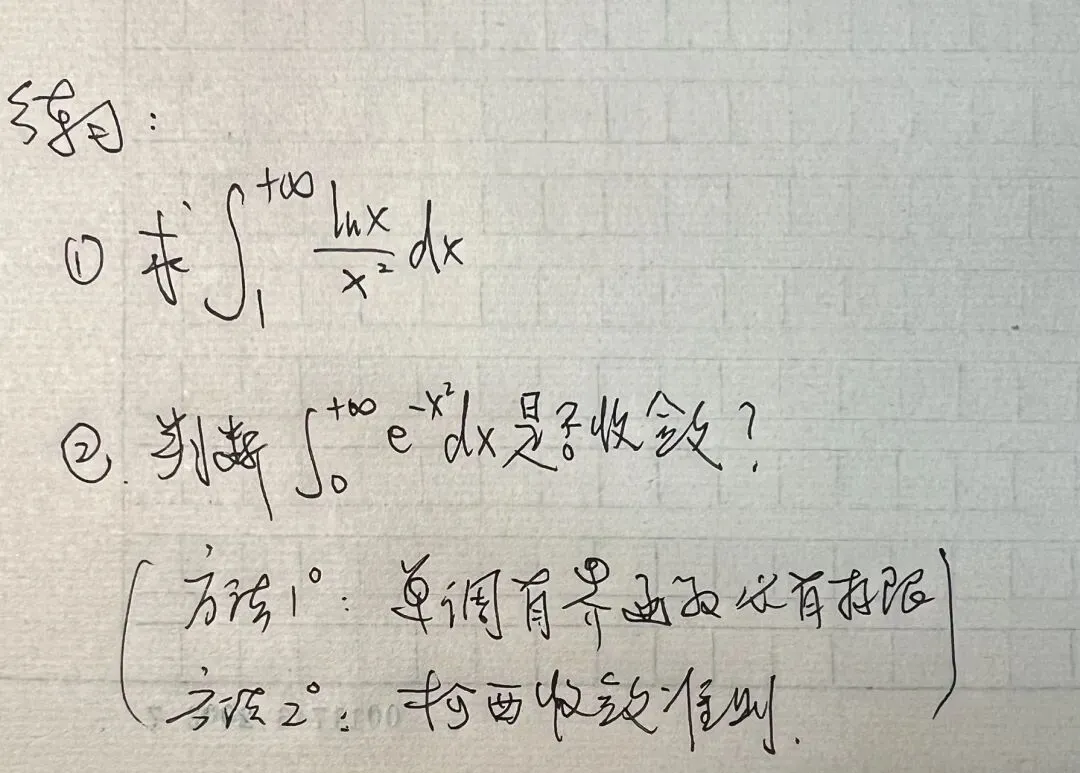 练习:
① 求 ∫₁^{+∞} \frac{ln x}{x²} dx
②. 判断 ∫₀^{+∞} e^{-x²}dx 是否收敛?
(方法1°: 单调有界函数必有极限
方法2°: 柯西收敛准则.)